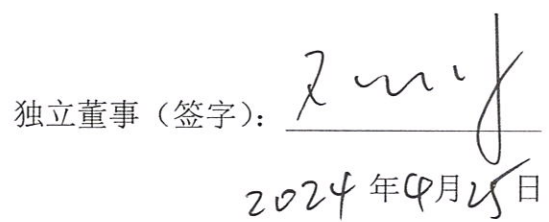 独立董事（签字）：
2024年4月25日